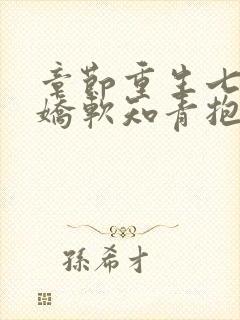 章節重生七
嬌軟知青抱
孫希才